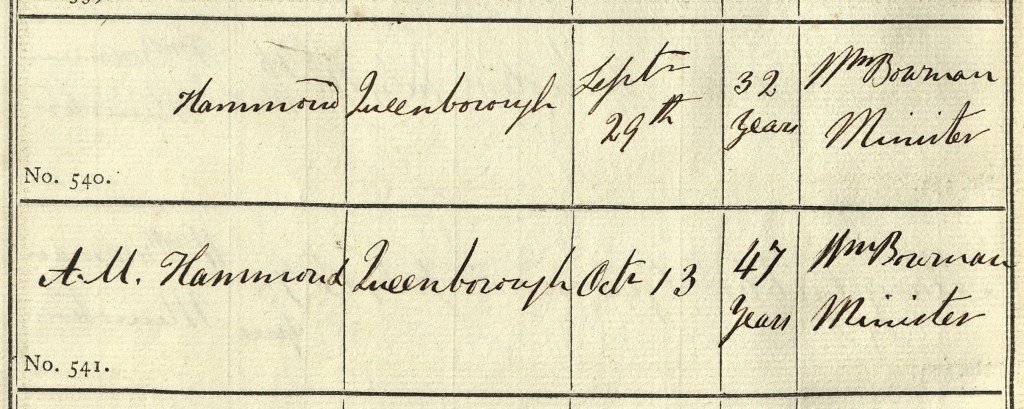 Hammond Queenborough Septr 29th 32 Years Wm Bowman Minister
No. 540.
A. M. Hammond Queenborough Octr 13 47 Years Wm Bowman Minister
No. 541.